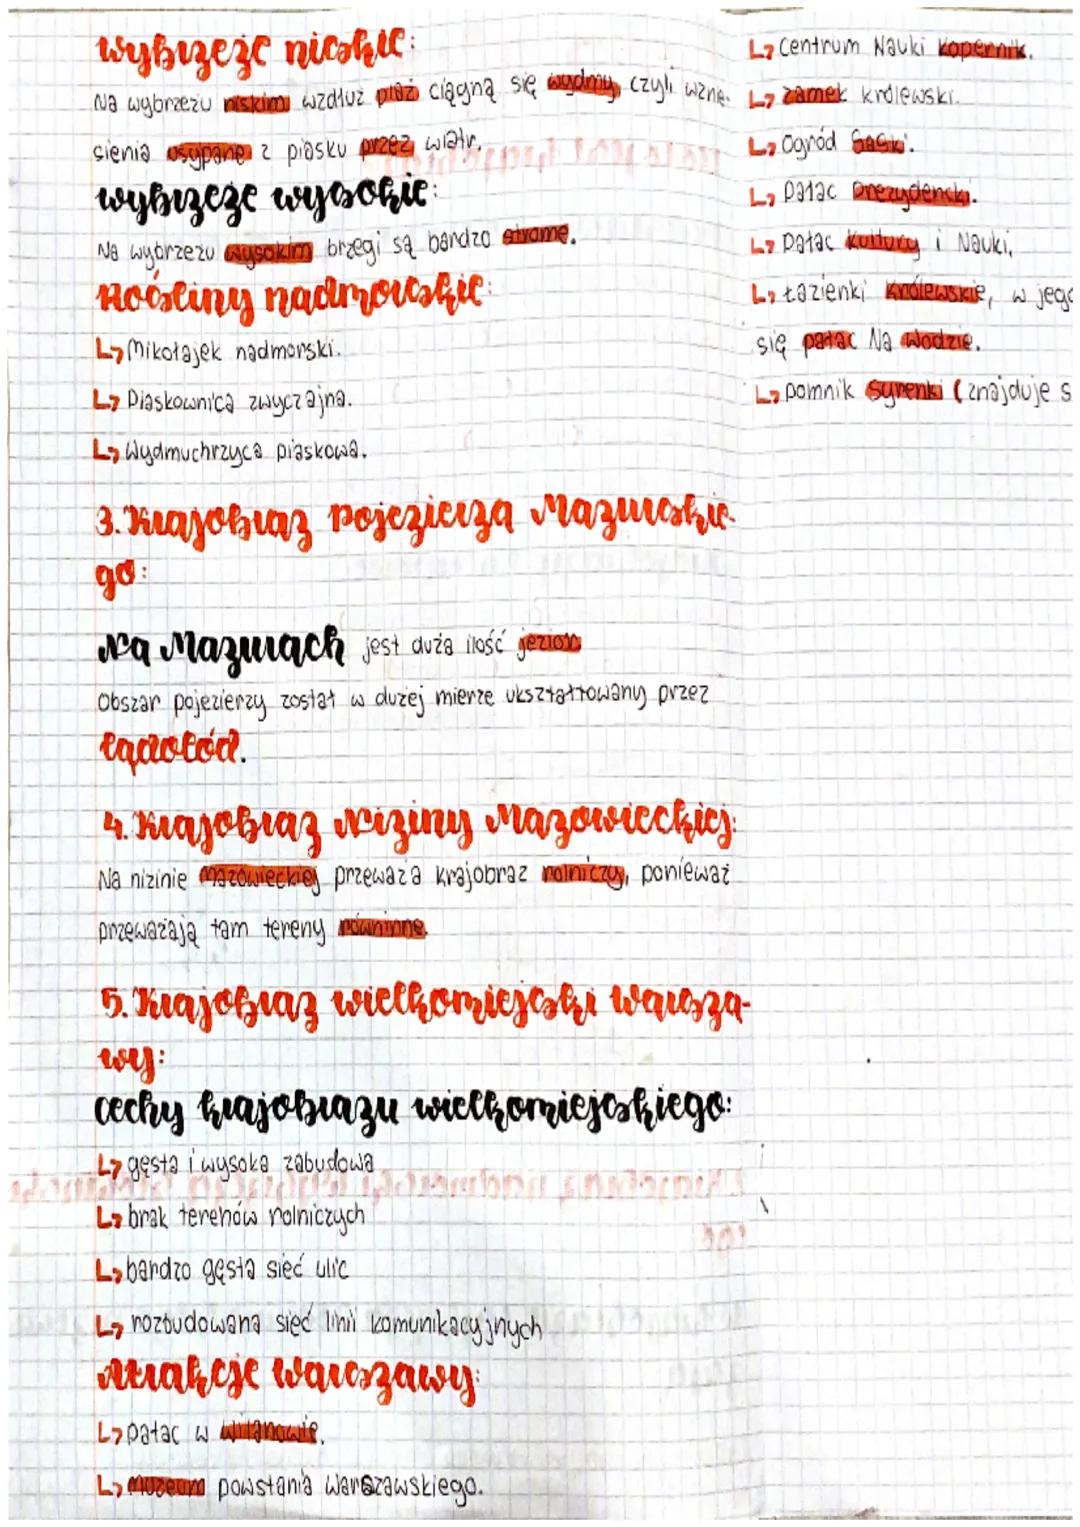 wybrzeże niskie:
Na wybrzeżu niskim wzdłuż plaż ciągną się wydmy, czyli wznie-
sienia usypane z piasku przez wiatr.
wybrzeże wysokie:
Na wybrzeżu wysokim brzegi są bardzo strome.
Rośliny nadmorskie:
↳ Mikołajek nadmorski.
↳ Piaskownica zwyczajna.
↳ Wydmuchrzyca piaskowa.
3. Krajobraz pojezierza Mazurskie-
go:
Na Mazurach jest duża ilość jezior
Obszar pojezierzy został w dużej mierze ukształtowany przez
lądolód.
4. Krajobraz Niziny Mazowieckiej:
Na nizinie mazowieckiej przeważa krajobraz rolniczy, ponieważ
przeważają tam tereny równinne.
5. Krajobraz wielkomiejski warsza-
wy:
cechy krajobrazu wielkomiejskiego:
↳ gęsta i wysoka zabudowa
↳ brak terenów rolniczych
↳ bardzo gęsta sieć ulic
↳ rozbudowana sieć linii komunikacyjnych
Atrakcje warszawy:
↳ pałac w wilanowie.
↳ muzeum powstania warszawskiego.
↳ Centrum Nauki Kopernik.
↳ zamek królewski.
↳ ogród Saski.
↳ pałac prezydencki.
↳ pałac kultury i Nauki.
↳ Łazienki Królewskie, w jego
się pałac Na Wodzie.
↳ pomnik Syrenki (znajduje s